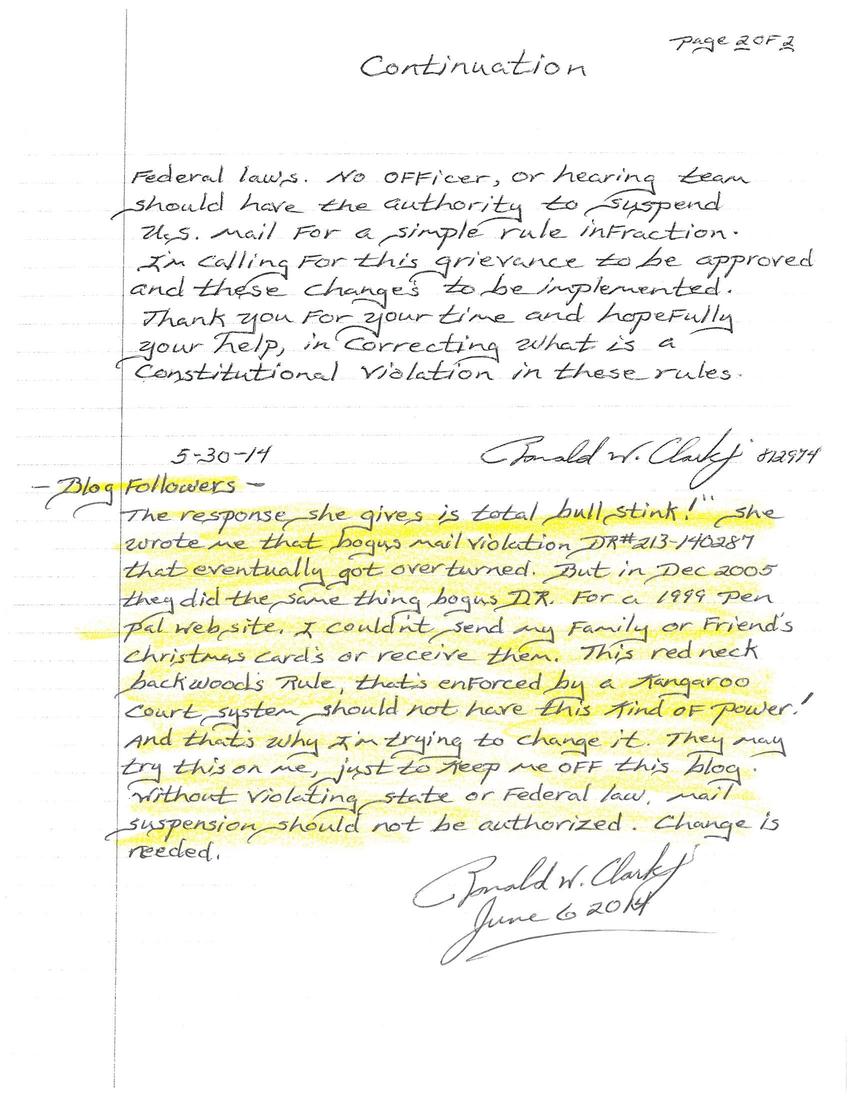 page 2 OF 2
Continuation
Federal law's. No OFFicer, or hearing team
should have the authority to suspend
U.S. mail For a simple rule inFraction.
I'm calling For this grievance to be approved
and these change's to be implemented.
Thank you For your time and hopeFully
your help, in correcting what is a
Constitutional Violation in these rules.
5-30-14 Ronald W. Clark Jr 812974
- Blog Followers -
The response she gives is total bull stink!" she
wrote me that bogus mail violation DR#213-140287
that eventually got overturned. But in Dec 2005
they did the same thing bogus DR. For a 1999 pen
pal web site. I couldn't send my Family or Friend's
Christmas card's or receive them. This red neck
backwood's Rule, that's enForced by a Kangaroo
Court system should not have this Kind oF power!
And that's why I'm trying to change it. They may
try this on me, just to Keep me oFF this blog.
Without Violating state or Federal law, mail
suspension should not be authorized. Change is
needed.
Ronald W. Clark Jr
June 6 2014